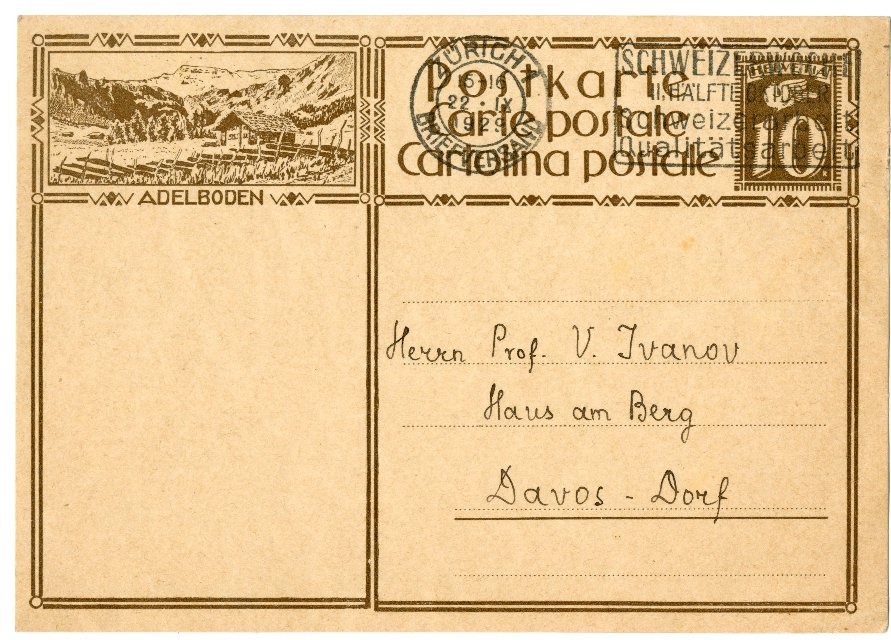 ADELBODEN
Postkarte
Carte postale
Cartolina postale
ZÜRICH 1
22·IX
1929
BRIEFVERSAND
SCHWEIZERWOCHE
II. HÄLFTE OKTOBER
Schweizerarbeit
Qualitätsarbeit
HELVETIA
10
Herrn Prof. V. Ivanov
Haus am Berg
Davos - Dorf